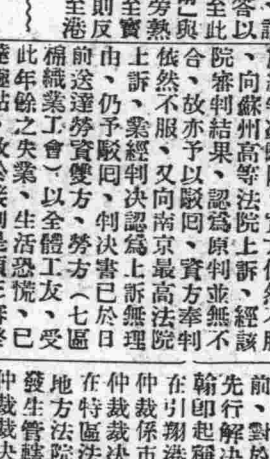 答以
至此
與
勞熟
至寶
則反
至港
、向蘇州高等法院上訴、經該
院審判結果、認爲原判並無不
合、故亦予以駁回、資方奉判
依然不服、又向南京最高法院
上訴、業經判決認爲上訴無理
由、仍予駁回、判決書已於日
前送達勞資雙方、勞方（七區
棉織業工會）以全體工友、受
此年餘之失業、生活恐慌、已
前、對於
先行解決
翰卽起
在引翔港
仲裁係市
仲裁裁決
在特區法
地方法院
發生管轄
仲裁裁決